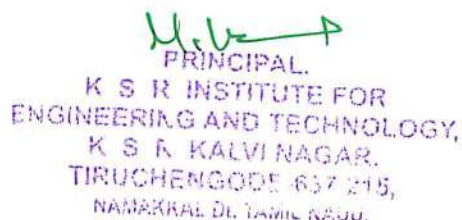 PRINCIPAL.
K S R INSTITUTE FOR
ENGINEERING AND TECHNOLOGY,
K S R KALVI NAGAR.
TIRUCHENGODE 637 215,
NAMAKKAL Dt. TAMIL NADU.